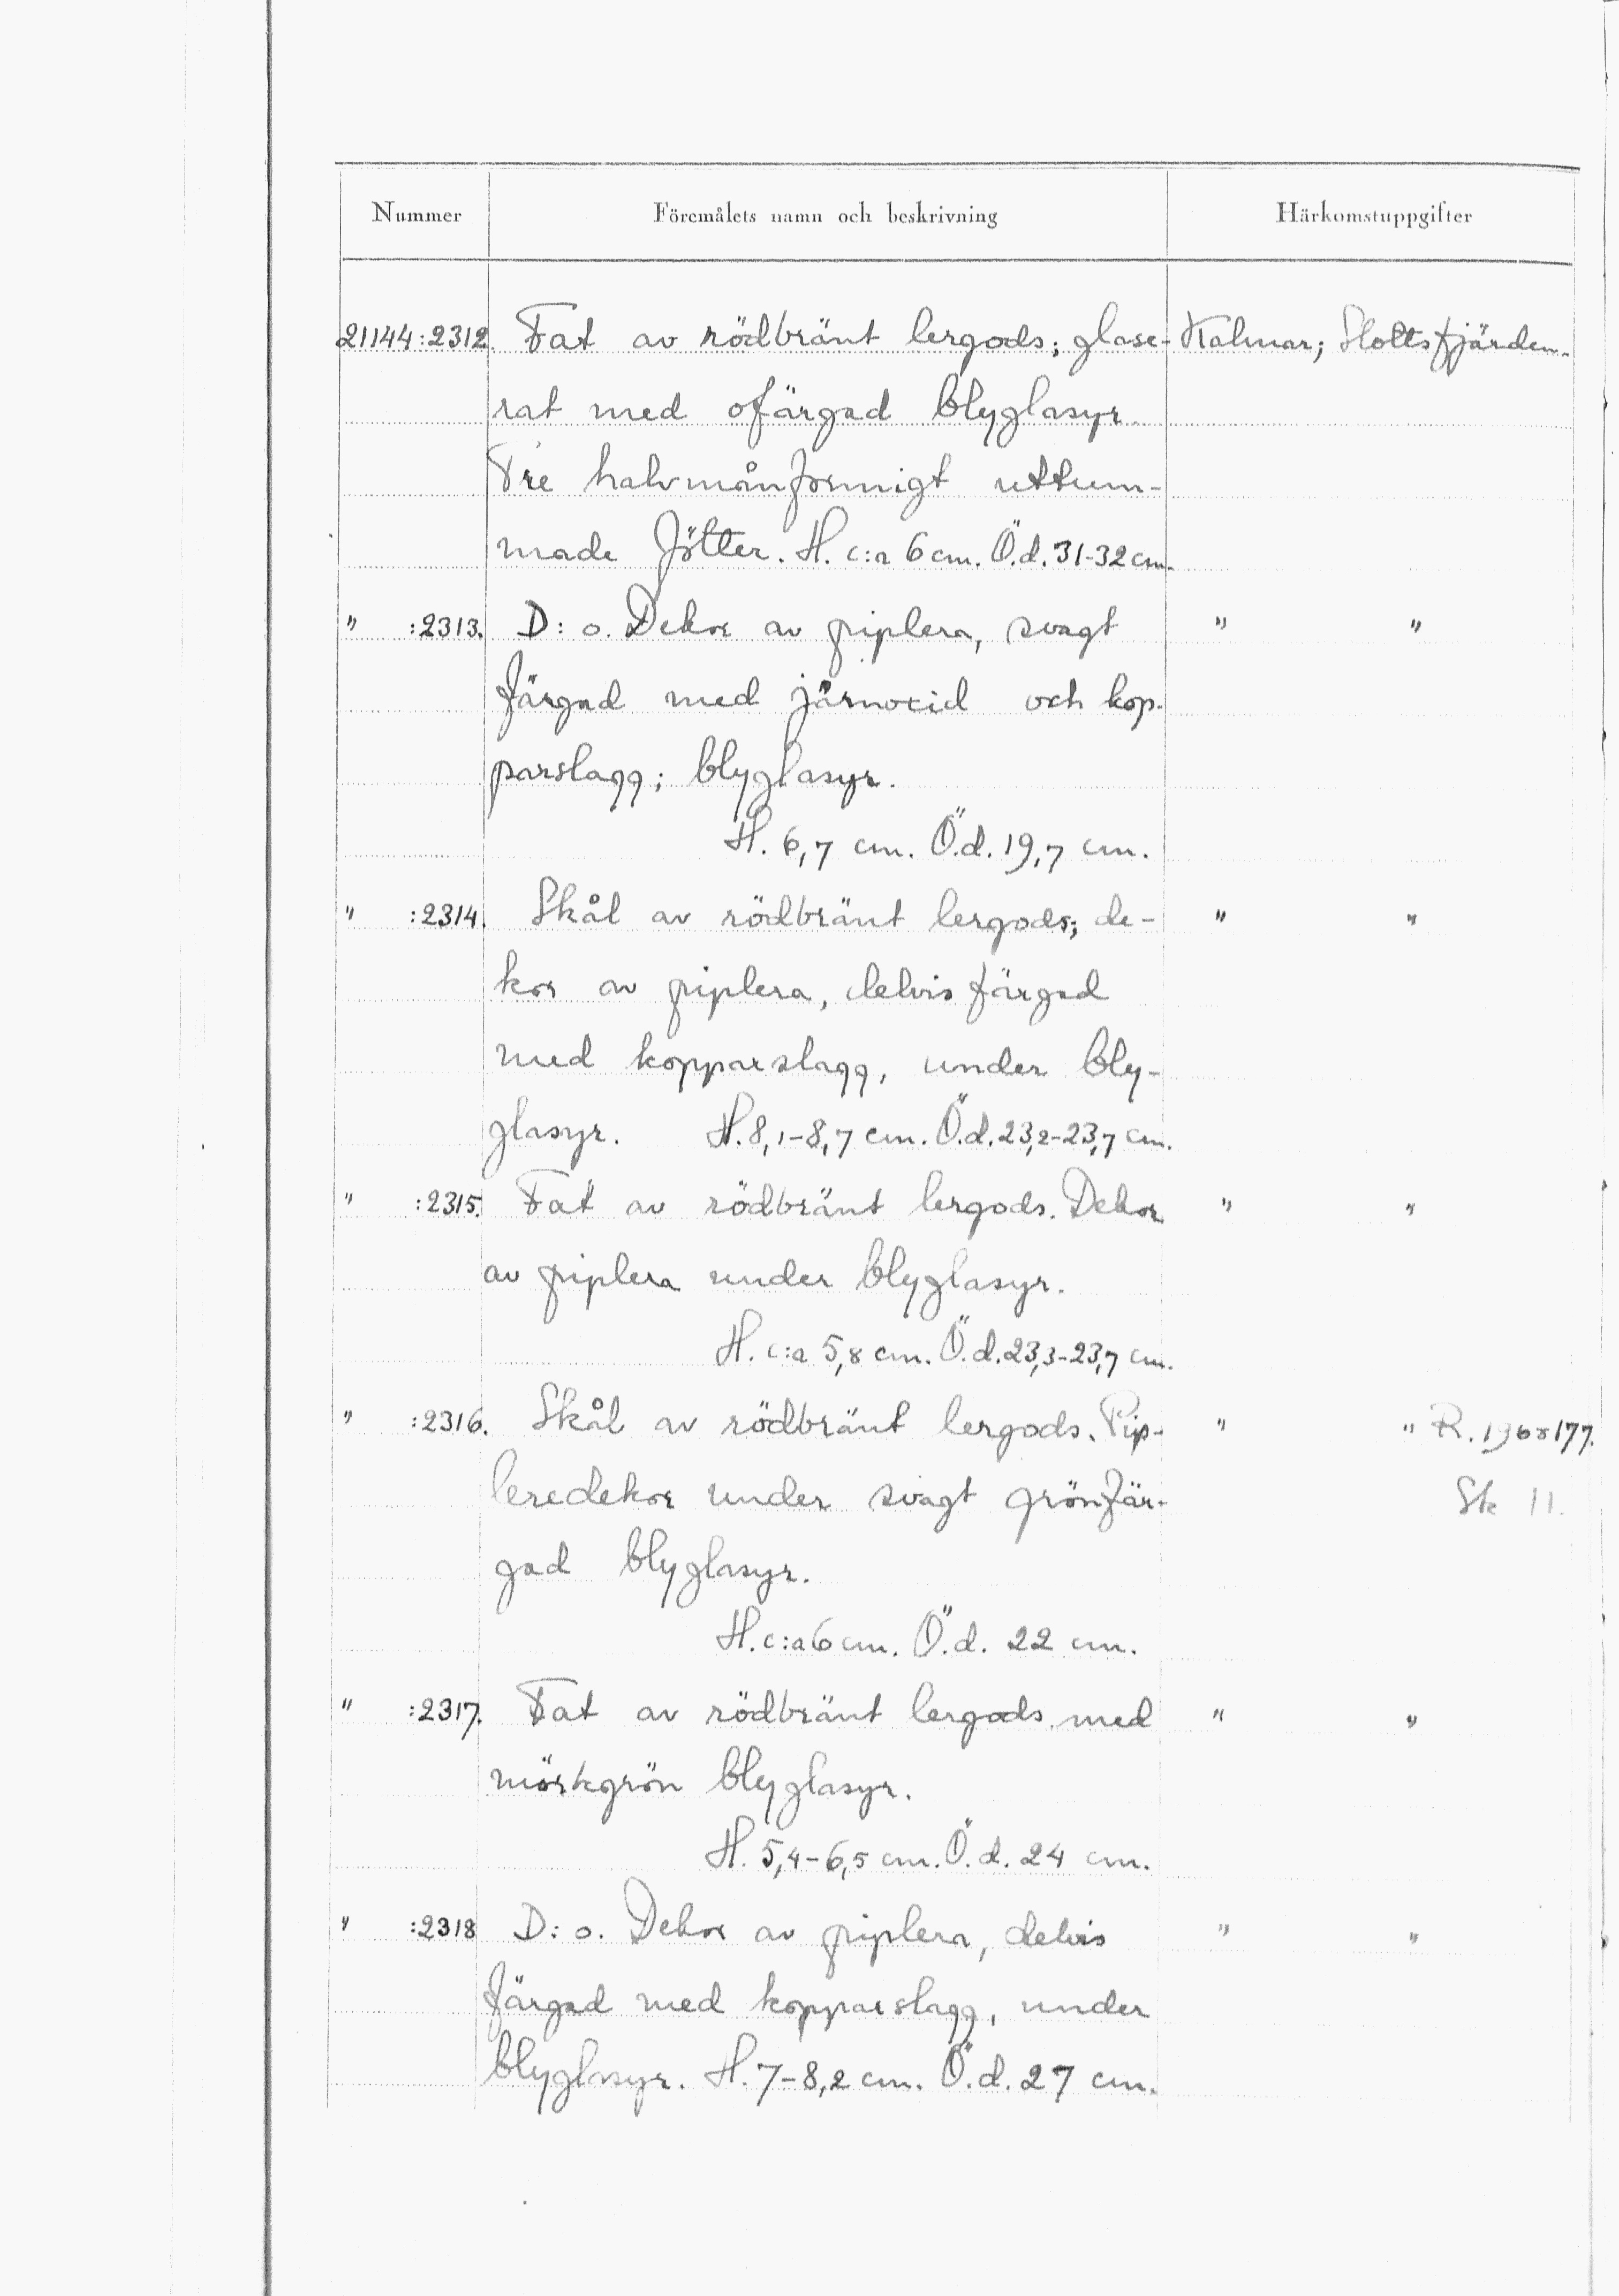 Nummer Föremålets namn och beskrivning Härkomstuppgifter
21144:2312. Fat av rödbränt lergods; glase- Kalmar; Slottsfjärden.
rat med ofärgad blyglasyr.
Tre halvmånformigt uttum-
made fötter. H. c:a 6 cm. Ö.d. 31-32 cm.
" :2313. D:o. Dekor av piplera, svagt " "
färgad med järnoxid och kop-
parslagg; blyglasyr.
H. 6,7 cm. Ö.d. 19,7 cm.
" :2314. Skål av rödbränt lergods; de- " "
kor av piplera, delvis färgad
med kopparslagg, under bly-
glasyr. H. 8,1-8,7 cm. Ö.d. 23,2-23,7 cm.
" :2315. Fat av rödbränt lergods. Dekor " "
av piplera under blyglasyr.
H. c:a 5,8 cm. Ö.d. 23,3-23,7 cm.
" :2316. Skål av rödbränt lergods. Pip- " " R.
leredekor under svagt grönfär- Sk 11.
gad blyglasyr.
H. c:a 6 cm. Ö.d. 22 cm.
" :2317. Fat av rödbränt lergods med " "
mörkgrön blyglasyr.
H. 5,4-6,5 cm. Ö.d. 24 cm.
" :2318 D:o. Dekor av piplera, delvis " "
färgad med kopparslagg, under
blyglasyr. H. 7-8,2 cm. Ö.d. 27 cm.